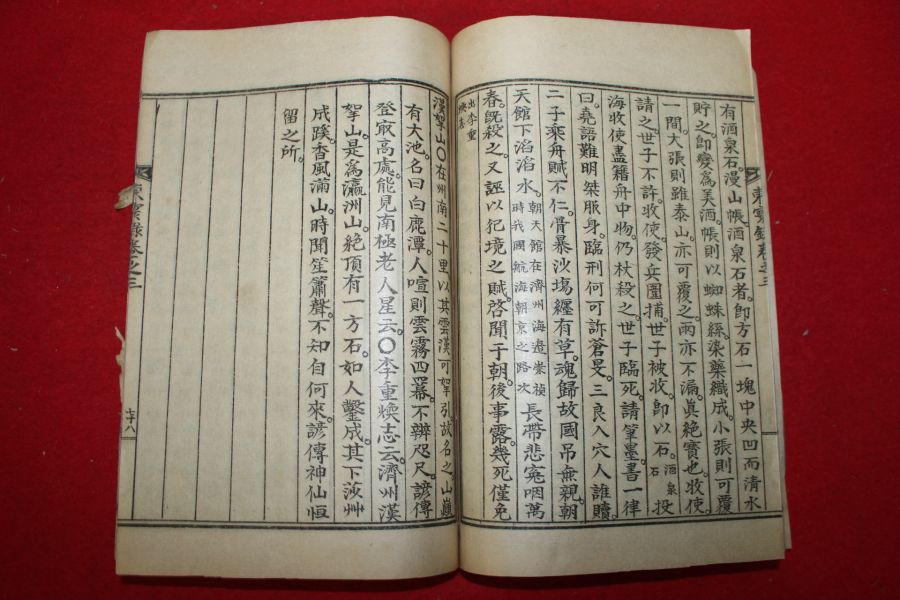 有酒泉石漫山帳。酒泉石者。卽方石一塊中央凹而清水
貯之。卽變爲美酒。帳則以蜘蛛絲染藥織成。小張則可覆
一間。大張則雖泰山。亦可覆之。雨亦不漏。眞絶寶也。收使。
請之。世子不許。收使。發兵圍捕。世子被收。卽以石 酒泉石 投
海收使盡籍舟中物。仍杖殺之。世子臨死。請筆墨書一律
曰。堯語難明桀服身。臨刑何可訴蒼旻。三良入穴人誰贖。
二子乘舟賊不仁。骨暴沙塲纏有草。魂歸故國吊無親。朝
天館下滔滔水。 朝天館在濟州海邊崇禎時我國航海朝京之路次 長帶悲寃咽萬
春。旣殺之。又誣以犯境之賊。啓聞于朝。後事露。幾死僅免
出李重煥志
漢拏山〇在州南二十里。以其雲漢可拏引故名之。山巓
有大池。名曰白鹿潭。人喧則雲霧四冪。不辨咫尺。諺傳
登㝡高處。能見南極老人星云。〇李重煥志云濟州漢
拏山。是爲瀛洲山。絶頂有一方石。如人鑿成。其下莎艸
成蹊。香風滿山。時聞笙簫聲。不知自何來。諺傳神仙恒
留之所。
東寰錄卷之三